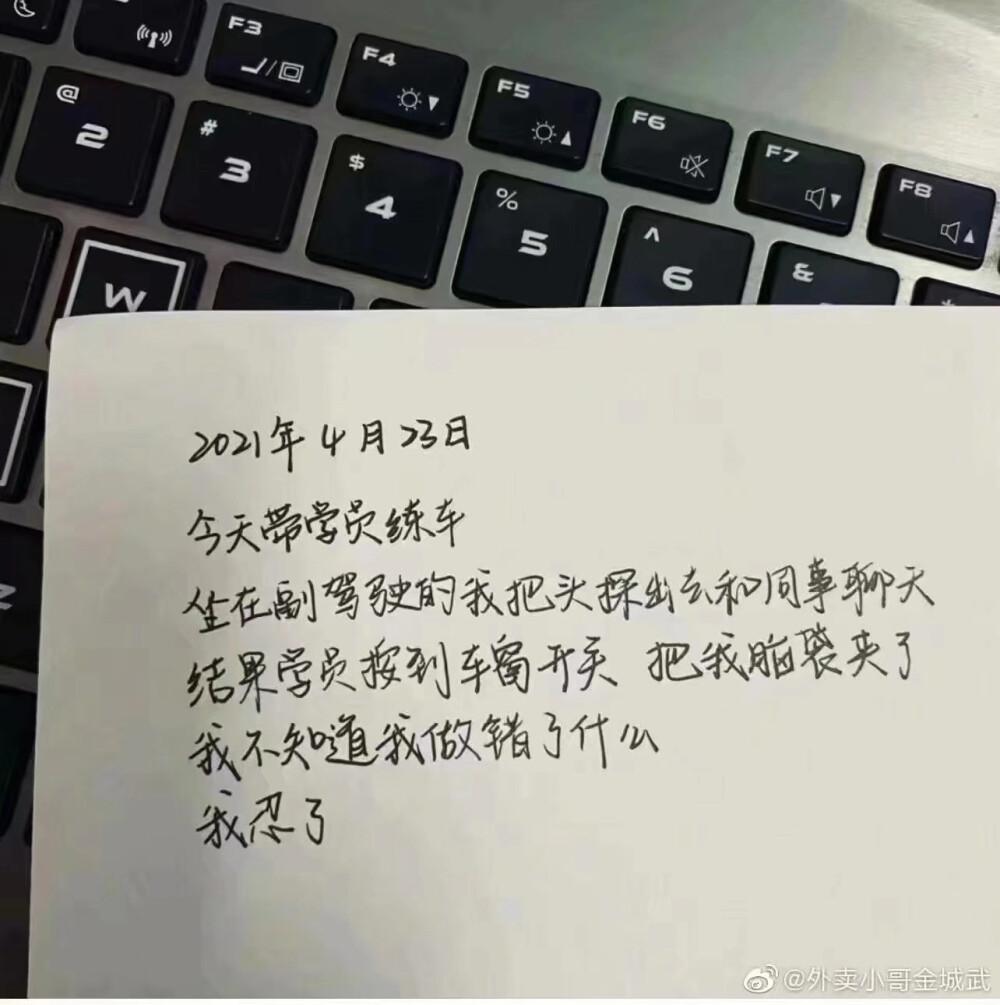 F3
F4
F5
F6
F7
F8
@
2
#
3
$
4
%
5
^
6
&
W
Z
2021年4月23日
今天带学员练车
坐在副驾驶的我把头探出去和同事聊天
结果学员按到车窗开关 把我脑袋夹了
我不知道我做错了什么
我忍了
@外卖小哥金城武